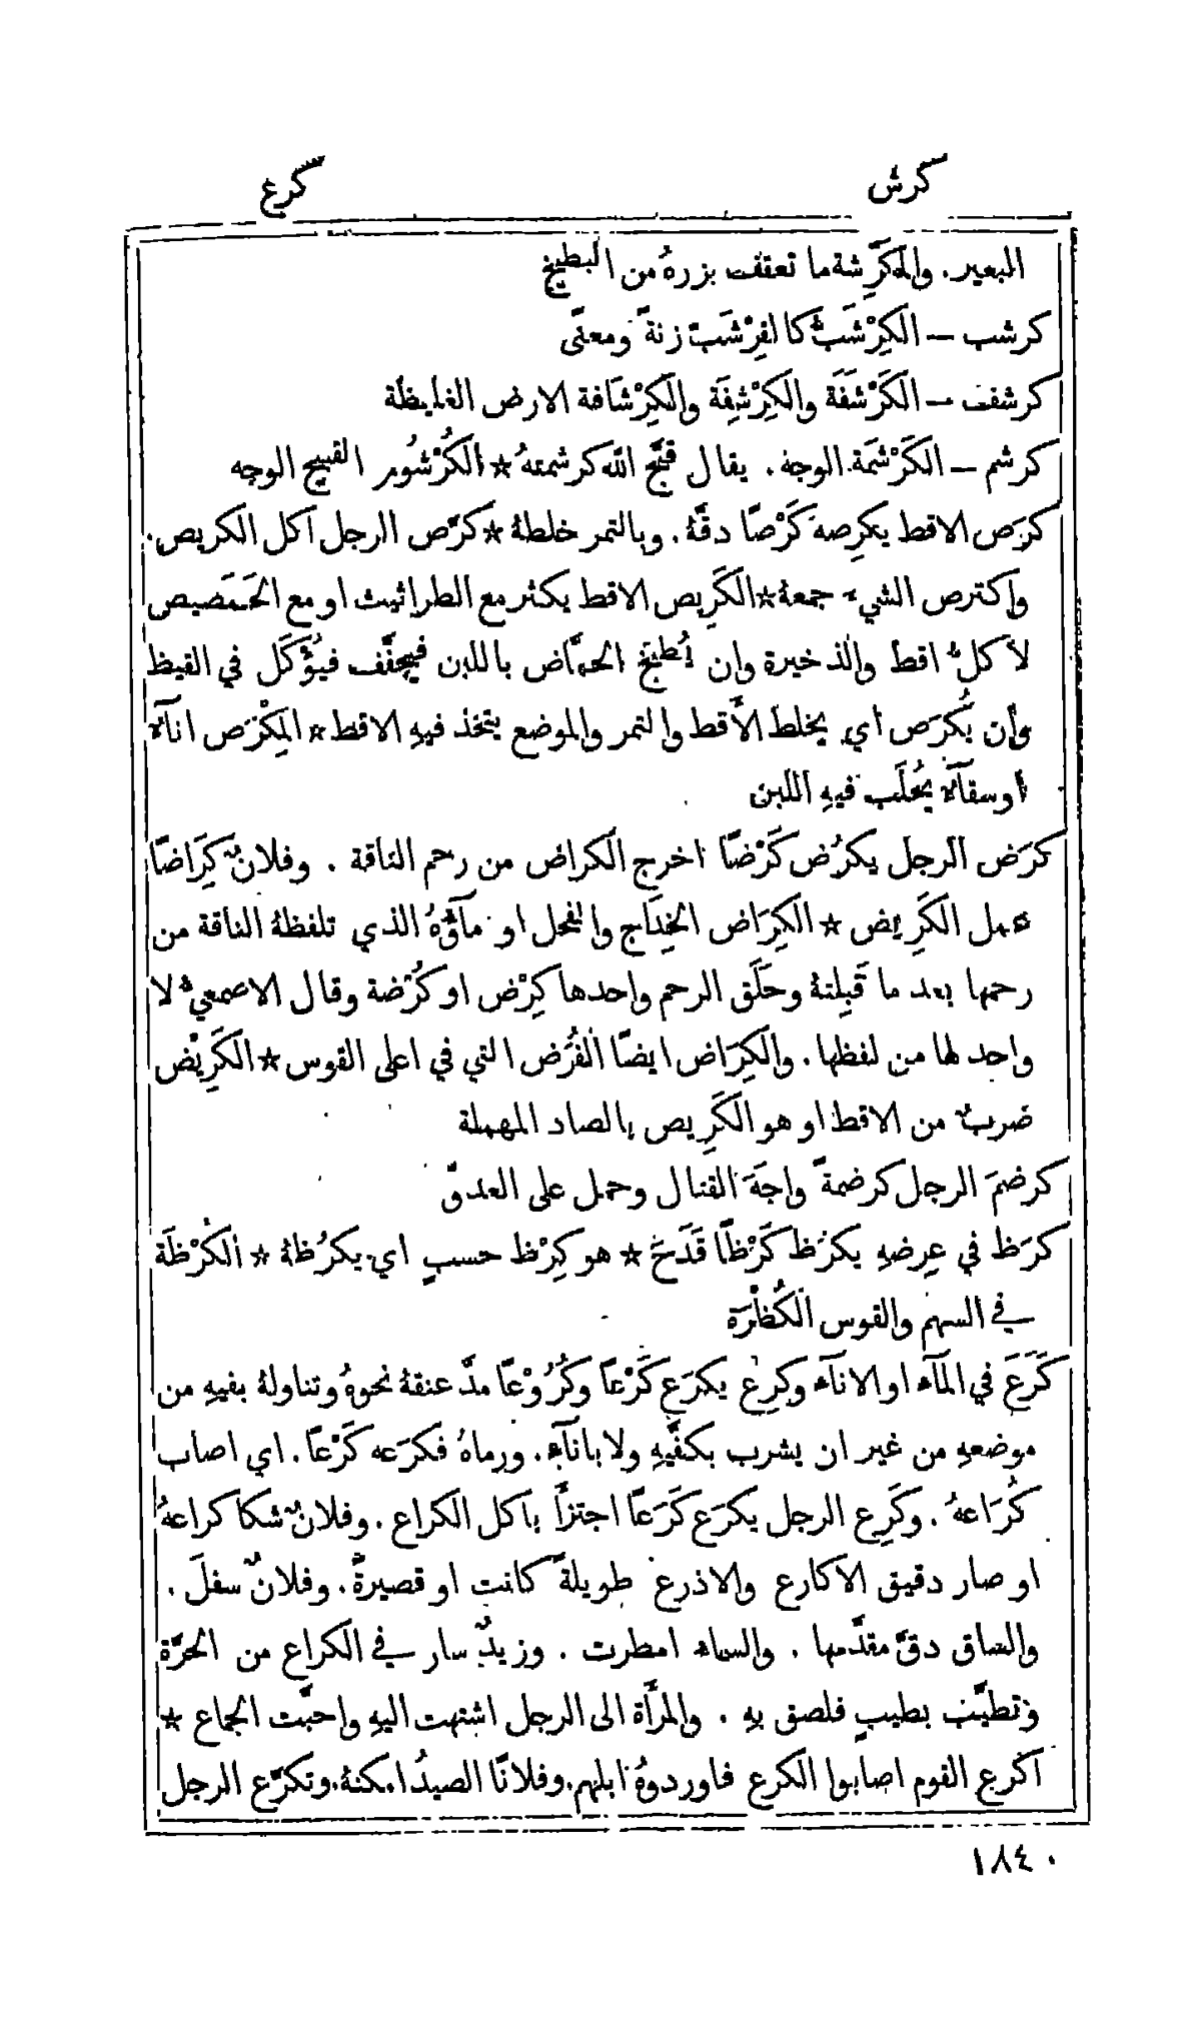 كرش
كرع
البعير. والمُكَرِّشة ما تعقف بزرهُ من البطيخ
كرشب — الكِرْشَبّ كالقِرْشَبّ زنةً ومعنًى
كرشف — الكَرْشَفَة والكِرْشِفَة والكِرْشَافة الارض الغليظة
كرشم — الكَرْشَمَة الوجه. يقال قبَّح الله كرشمتهُ * الكُرْشُوم القبيح الوجه
كرَص الاقط يكرِصه كَرْصًا دقَّهُ. وبالتمر خلطهُ * كرّص الرجل اكل الكريص.
واكترص الشيء جمعهُ * الكَرِيص الاقط يكثر مع الطراثيث او مع الحَمَصيص
لا كلّ اقط والذخيرة وان يُطبَخ الحمَّاض باللبن فيجفَّف فيُؤكَل في القيظ
وأن يُكرَص اي يخلط الأقط والتمر والموضع يتخذ فيهِ الاقط * المِكْرَص انآء
او سقآء يُحلَب فيهِ اللبن
كرَض الرجل يكرُض كَرْضًا اخرج الكراض من رحم الناقة. وفلانٌ كِرَاضًا
عمل الكَرِيض * الكِرَاض الخِدَاج والفحل او مآؤُهُ الذي تلفظهُ الناقة من
رحمها بعد ما قَبِلتهُ وحَلَق الرحم واحدها كِرْض او كُرْضة وقال الاصمعيّ لا
واحد لها من لفظها. والكِرَاض ايضًا الفُرَض التي في اعلى القوس * الكَرِيْض
ضربٌ من الاقط او هو الكَرِيص بالصاد المهملة
كرضمَ الرجل كرضمةً واجَهَ القتال وحمل على العدوّ
كرَظ في عِرضهِ يكرُظ كَرْظًا قَدَحَ * هو كِرْظ حسبٍ اي يكرُظهُ * الكُرْظَة
في السهم والقوس الكُظْرَة
كَرَعَ في المآء او الانآء وكرِع يكرَع كَرْعًا وكُرُوْعًا مدَّ عنقهُ نحوهُ وتناولهُ بفيهِ من
موضعهِ من غير ان يشرب بكفَّيهِ ولا بانآء. ورماهُ فكرَعه كَرْعًا. اي اصاب
كُرَاعهُ. وكَرِع الرجل يكرَع كَرَعًا اجتزأ باكل الكراع. وفلانٌ شكا كراعهُ
او صار دقيق الاكارع والاذرع طويلةً كانت او قصيرةً. وفلانٌ سفلَ.
والساق دقّ مقدَّمها. والسماء امطرت. وزيدٌ سار في الكراع من الحرَّة
وتطيَّب بطيبٍ فلصق بهِ. والمرأَة الى الرجل اشتهت اليهِ واحبَّت الجماع *
اكرع القوم اصابوا الكرع فاوردوهُ ابلهم. وفلانًا الصيدُ امكنهُ. وتكرّع الرجل
١٨٤٠